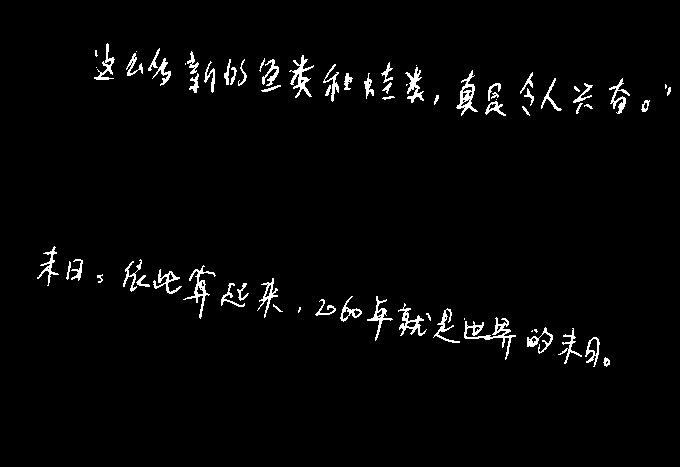 这么多新的鱼类和蛙类，真是令人兴奋。”
末日。依此算起来，2060年就是世界的末日。